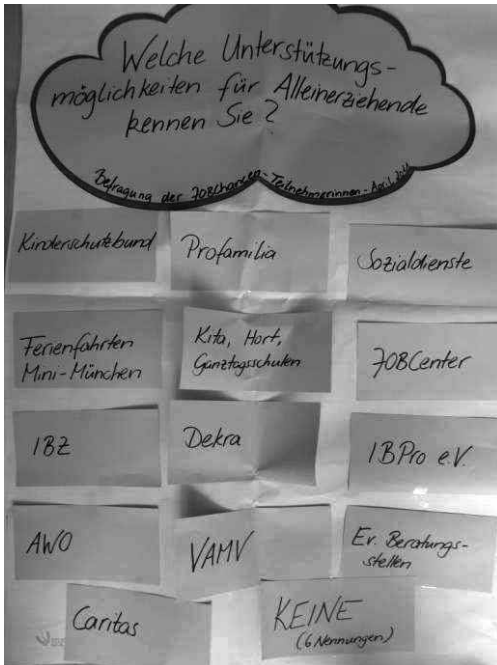 Welche Unterstützungs-
möglichkeiten für Alleinerziehende
kennen Sie?
Befragung der JOBChancen-Teilnehmerinnen - April
Kinderschutzbund
Profamilia
Sozialdienste
Ferienfahrten
Mini-München
Kita, Hort,
Ganztagsschulen
JOBCenter
IBZ
Dekra
IBPro e.V.
AWO
VAMV
Ev. Beratungs-
stellen
Caritas
KEINE
(6 Nennungen)